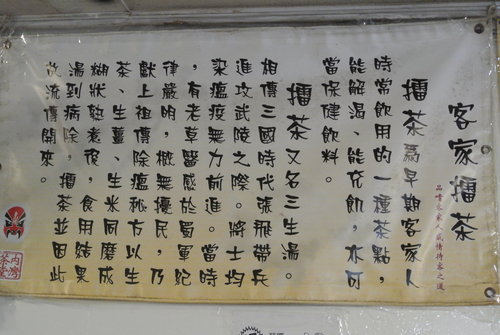 客家擂茶
品嚐客家人感情待客之道
擂茶為早期客家人
時常飲用的一種茶點，
能解渴、能充飢，亦可
當保健飲料。
擂茶又名三生湯。
相傳三國時代張飛帶兵
進攻武陵之際。將士均
染瘟疫無力前進。當時
，有老草醫感於蜀軍紀
律嚴明，概無擾民，乃
獻上祖傳除瘟秘方以生
茶、生薑、生米同磨成
糊狀熟煮後，食用結果
湯到病除，擂茶並因此
故流傳開來。
內灣